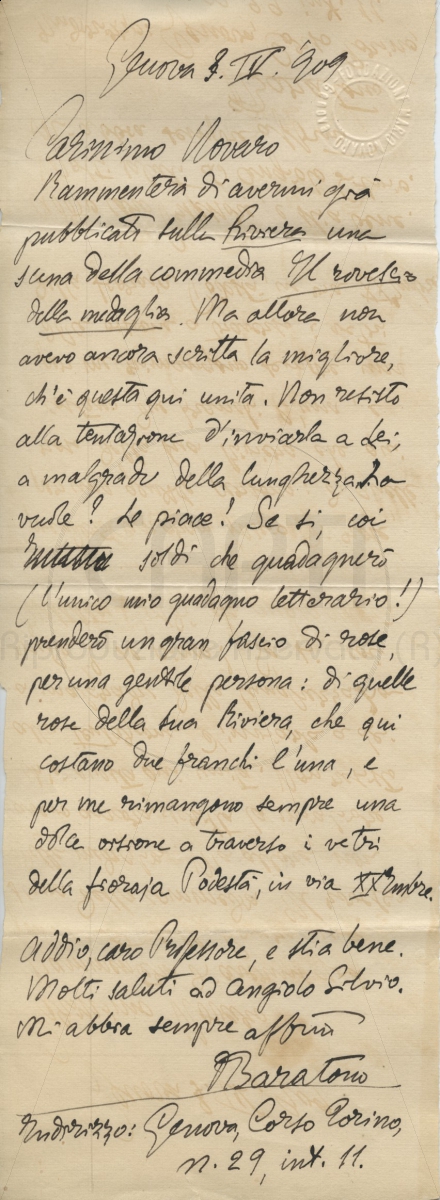 Genova 8. IV. 909
Carissimo Novaro
Rammenterà di avermi già
pubblicata sulla Riviera una
scena della commedia Il rovescio
della medaglia. Ma allora non
avevo ancora scritta la migliore,
ch'è questa qui unita. Non resisto
alla tentazione d'inviarla a Lei,
a malgrado della lunghezza. La
vuole? Le piace? Se sì, coi
soldi che guadagnerò
(l'unico mio guadagno letterario!)
prenderò un gran fascio di rose,
per una gentile persona: di quelle
rose della sua Riviera, che qui
costano due franchi l'una, e
per me rimangono sempre una
dolce visione a traverso i vetri
della fioraja Podestà, in via XX Smbre.
Addio, caro Professore, e stia bene.
Molti saluti ad Angiolo Silvio.
Mi abbia sempre affmo
Baratono
Indirizzo: Genova, Corso Torino,
n. 29, int. 11.